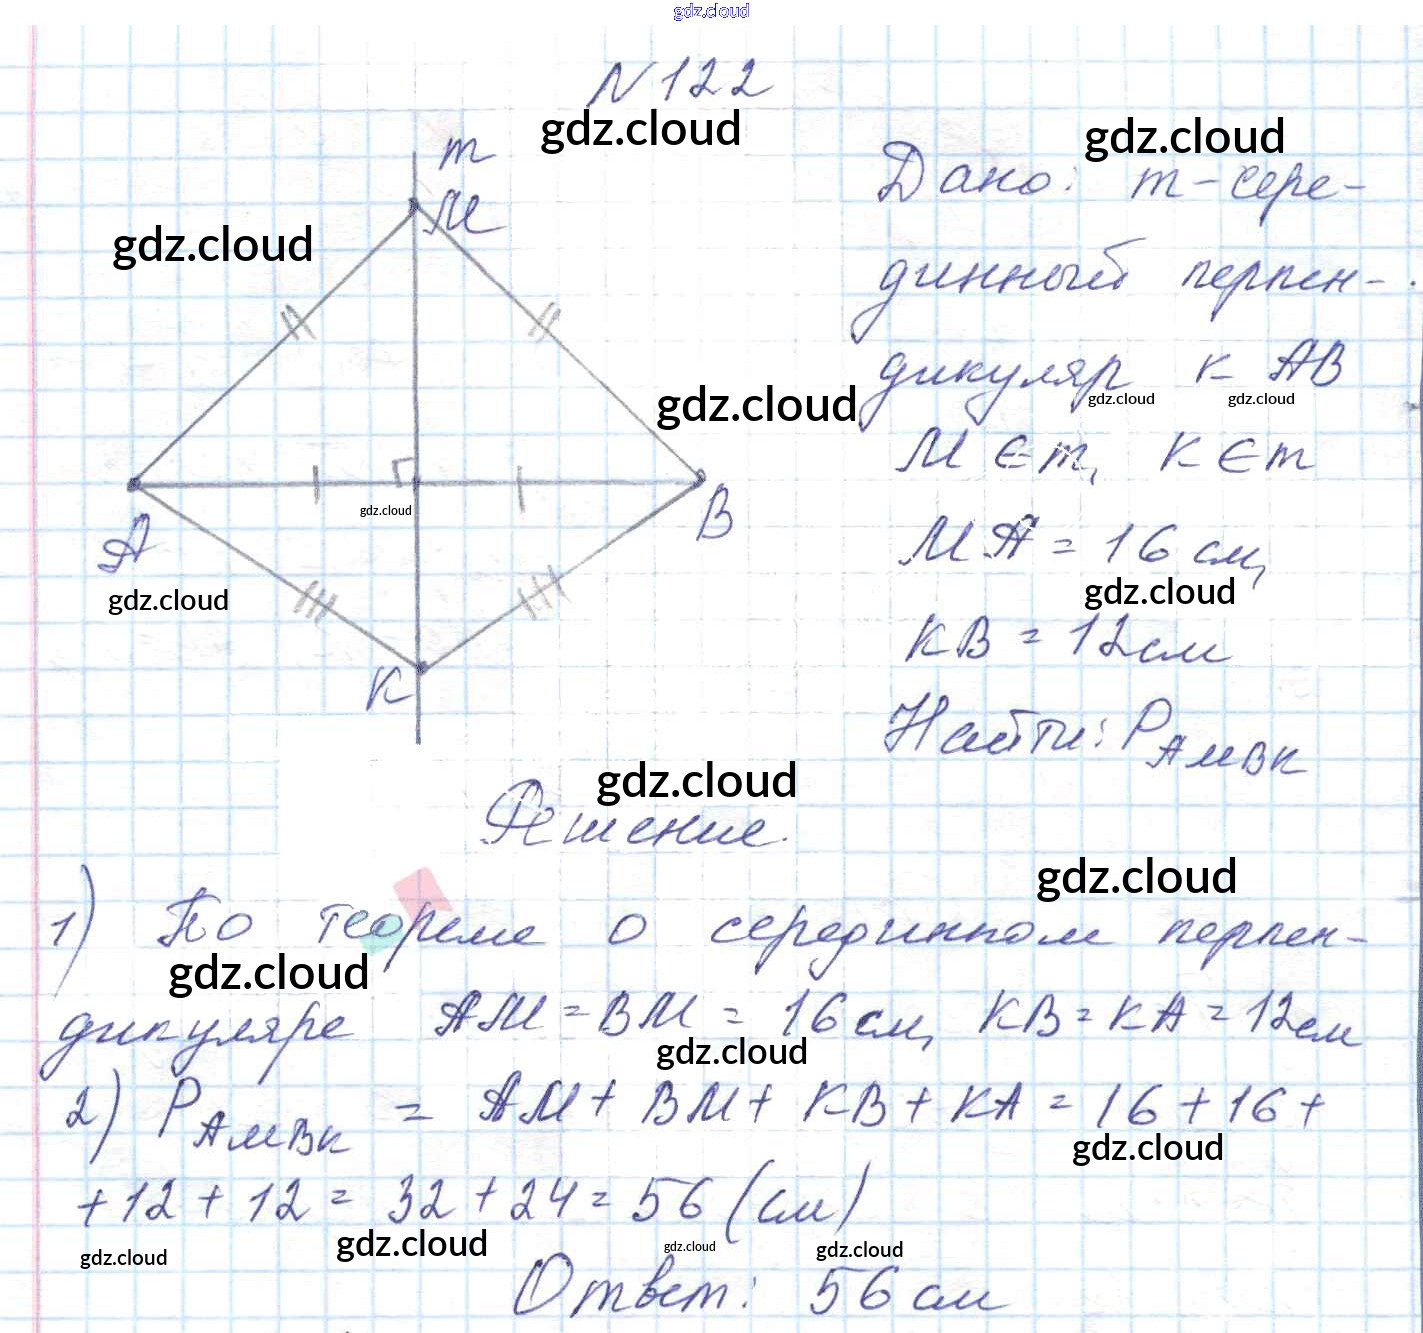 gdz.cloud
N 122
gdz.cloud
gdz.cloud
m
M
gdz.cloud
A
B
K
gdz.cloud
gdz.cloud
gdz.cloud
Дано: m - сере-
динный перпен-
дикуляр к AB
gdz.cloud gdz.cloud
M ∈ m, K ∈ m
MA = 16 см,
gdz.cloud
KB = 12 см
Найти: P AMBK
gdz.cloud
Решение.
gdz.cloud
1) По теореме о серединном перпен-
gdz.cloud
дикуляре AM = BM = 16 см, KB = KA = 12 см
gdz.cloud
2) P AMBK = AM + BM + KB + KA = 16 + 16 +
gdz.cloud
+ 12 + 12 = 32 + 24 = 56 (см)
gdz.cloud gdz.cloud gdz.cloud gdz.cloud
Ответ: 56 см